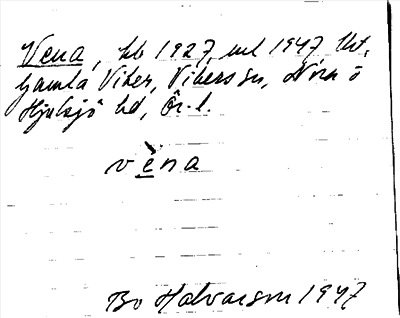 Vena, hb 1927, uel 1947 Ut,
Gamla Viker, Vikers sn, Nora o
Hjulsjö hd, Ör. l.
vèna
Bo Halvarson 1947